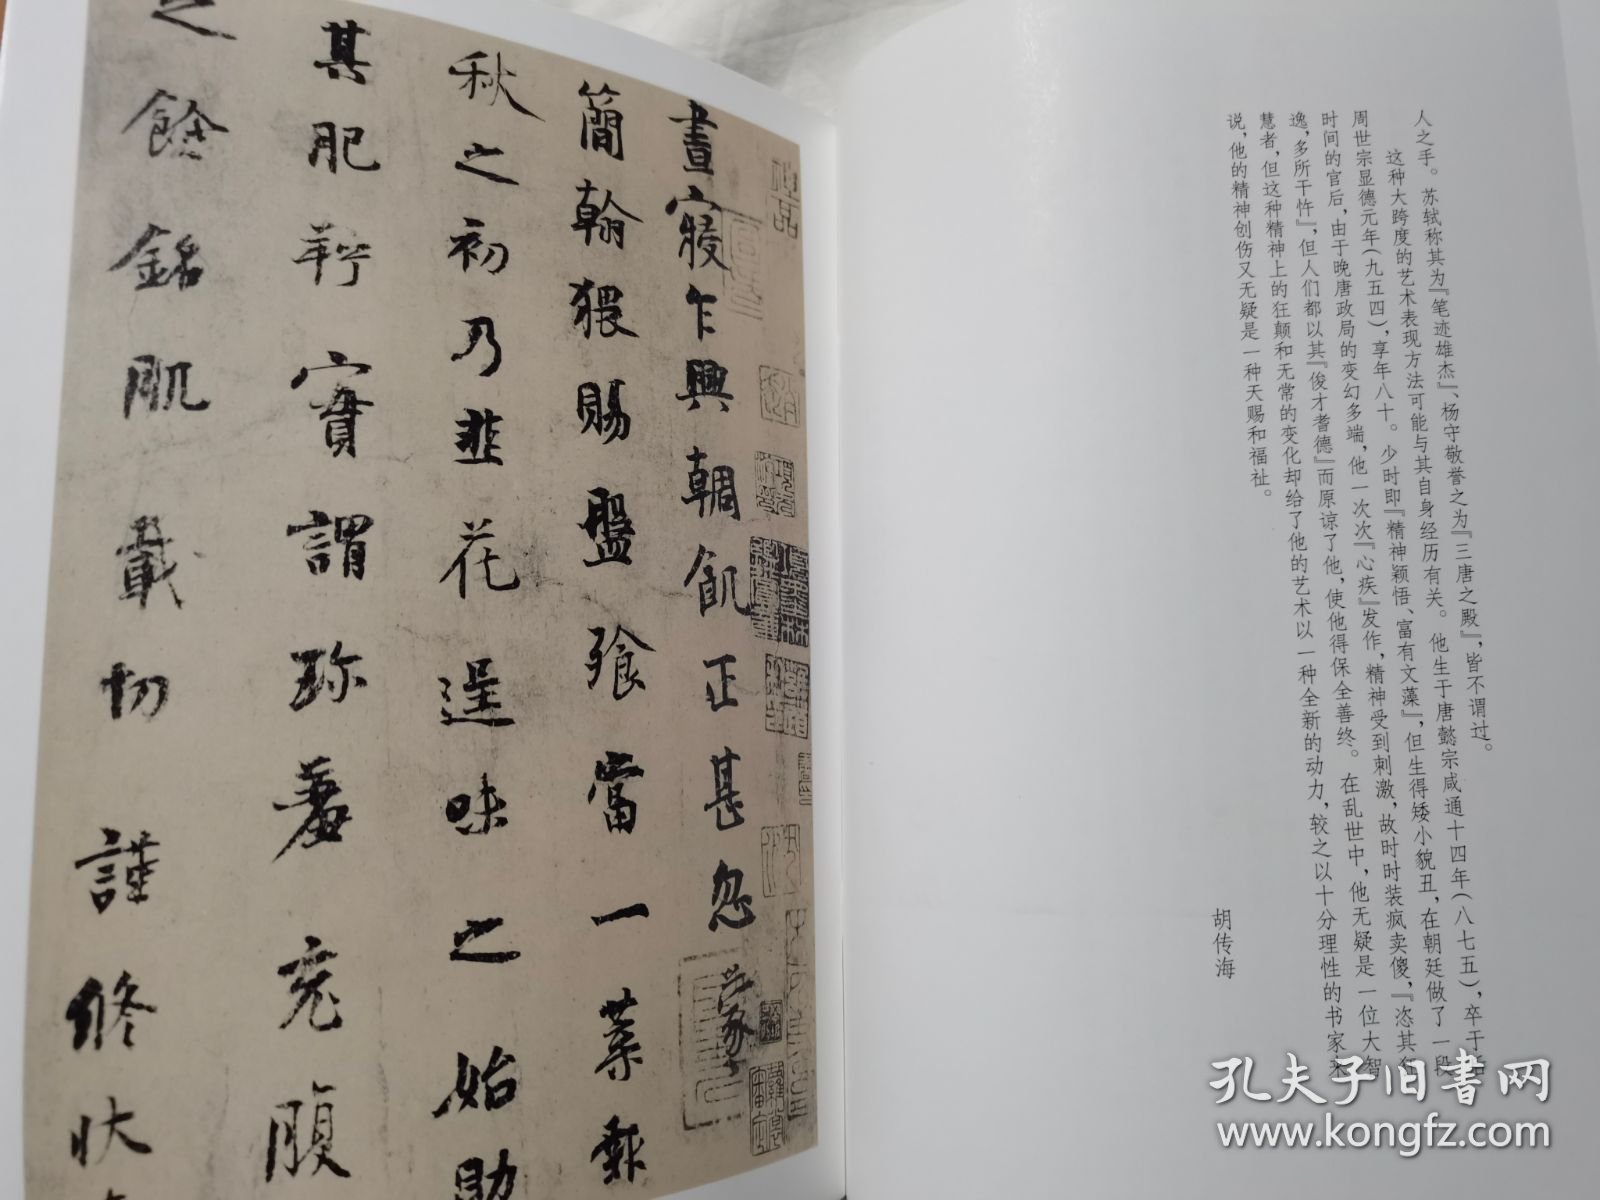 人之手。苏轼称其为『笔迹雄杰』、杨守敬誉之为『三唐之殿』，皆不谓过。
这种大跨度的艺术表现方法可能与其自身经历有关。他生于唐懿宗咸通十四年(八七五)，卒于后
周世宗显德元年(九五四)，享年八十。少时即『精神颖悟、富有文藻』，但生得矮小貌丑，在朝廷做了一段
时间的官后，由于晚唐政局的变幻多端，他一次次『心疾』发作，精神受到刺激，故时时装疯卖傻，『恣其狂
逸，多所干忤』，但人们都以其『俊才耆德』而原谅了他，使他得保全善终。在乱世中，他无疑是一位大智
慧者，但这种精神上的狂颠和无常的变化却给了他的艺术以一种全新的动力，较之以十分理性的书家来
说，他的精神创伤又无疑是一种天赐和福祉。
胡传海
晝寢乍興輖飢正甚忽蒙
簡翰猥賜盤飧當一葉報
秋之初乃韭花逞味之始助
其肥羜實謂珍羞充腹
之餘銘肌載切謹脩狀
神品
孔夫子旧书网
www.kongfz.com